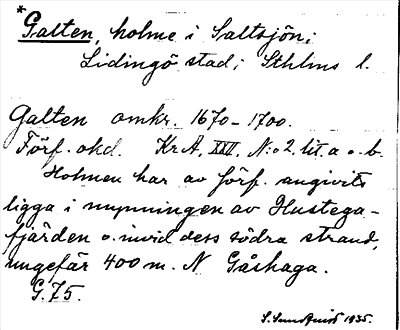 *Galten, holme i Saltsjön;
Lidingö stad; Sthlms l.
Galten omkr. 1670-1700.
Förf. okd. KrA, XXVI, N:o 2 lit. a o. b.
Holmen har av förf. angivits
ligga i mynningen av Hustega-
fjärden o. invid dess södra strand,
ungefär 400 m. N Gåshaga.
G. 75.
S. Sundqvist 1935.